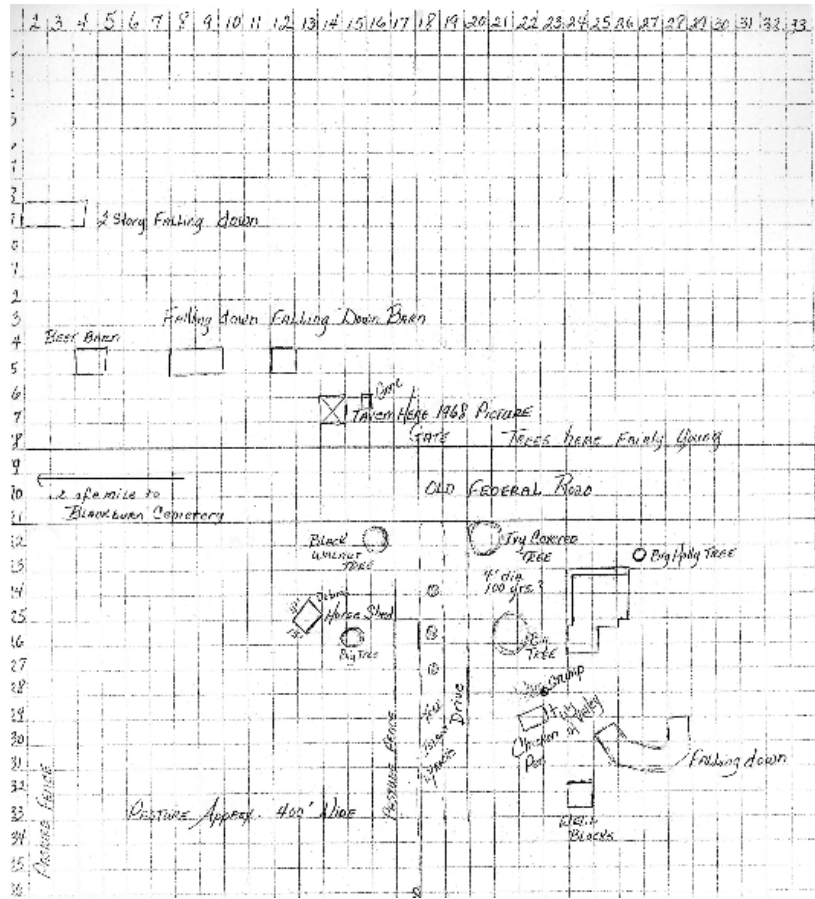 1 2 3 4 5 6 7 8 9 10 11 12 13 14 15 16 17 18 19 20 21 22 23 24 25 26 27 28 29 30 31 32 33
2 Story Falling down
Falling down Falling Down Barn
Beef Barn
Gone
Tavern Here 1968 Picture
Gate Trees here Fairly Young
.2 of a mile to
Blackburn Cemetery
Old Federal Road
Black
Walnut
Tree
Ivy Covered
Tree
Big Holly Tree
4' dia
100 yrs.?
Horse Shed
Big Tree
Big
Tree
Stump
Chicken
Pen
Drive
Pasture Fence
Falling down
Pasture Fence
Pasture Approx. 400' Wide
Well
Blocks